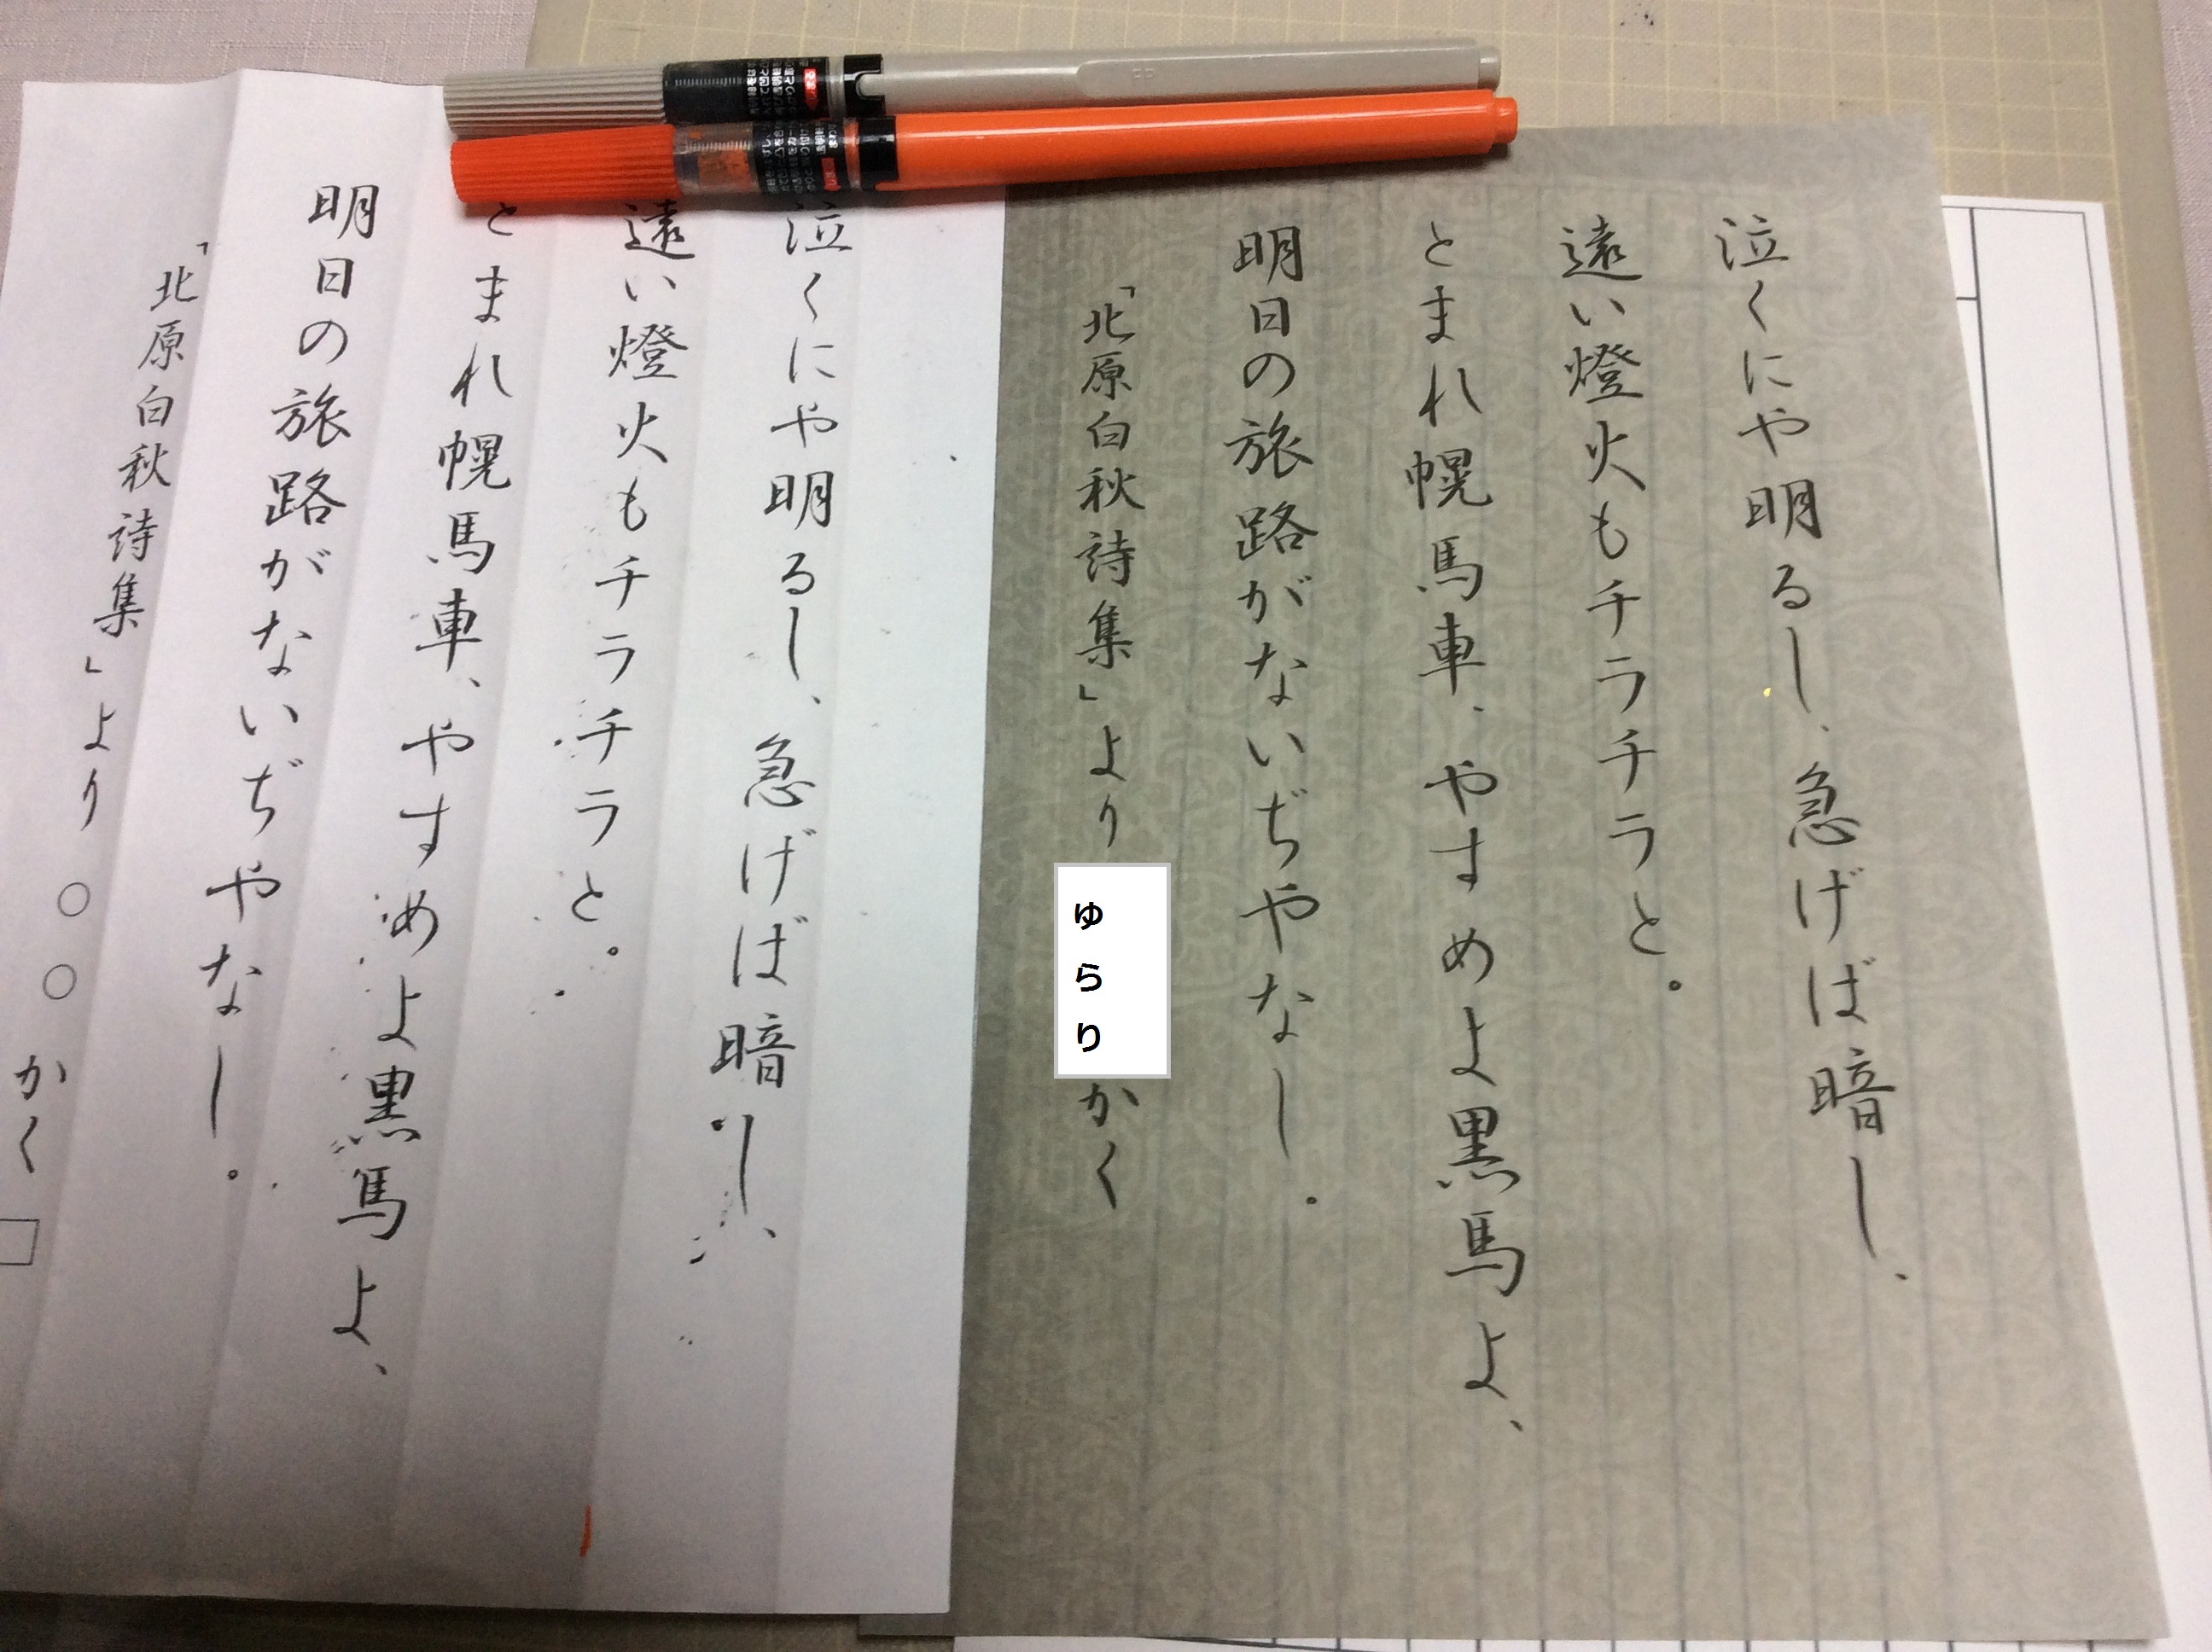 泣くにや明るし、急げば暗し、
遠い燈火もチラチラと。
とまれ幌馬車、やすめよ黒馬よ、
明日の旅路がないぢやなし。
「北原白秋詩集」より
ゆらり
かく
泣くにや明るし、急げば暗し、
遠い燈火もチラチラと。
とまれ幌馬車、やすめよ黒馬よ、
明日の旅路がないぢやなし。
「北原白秋詩集」より ○○かく